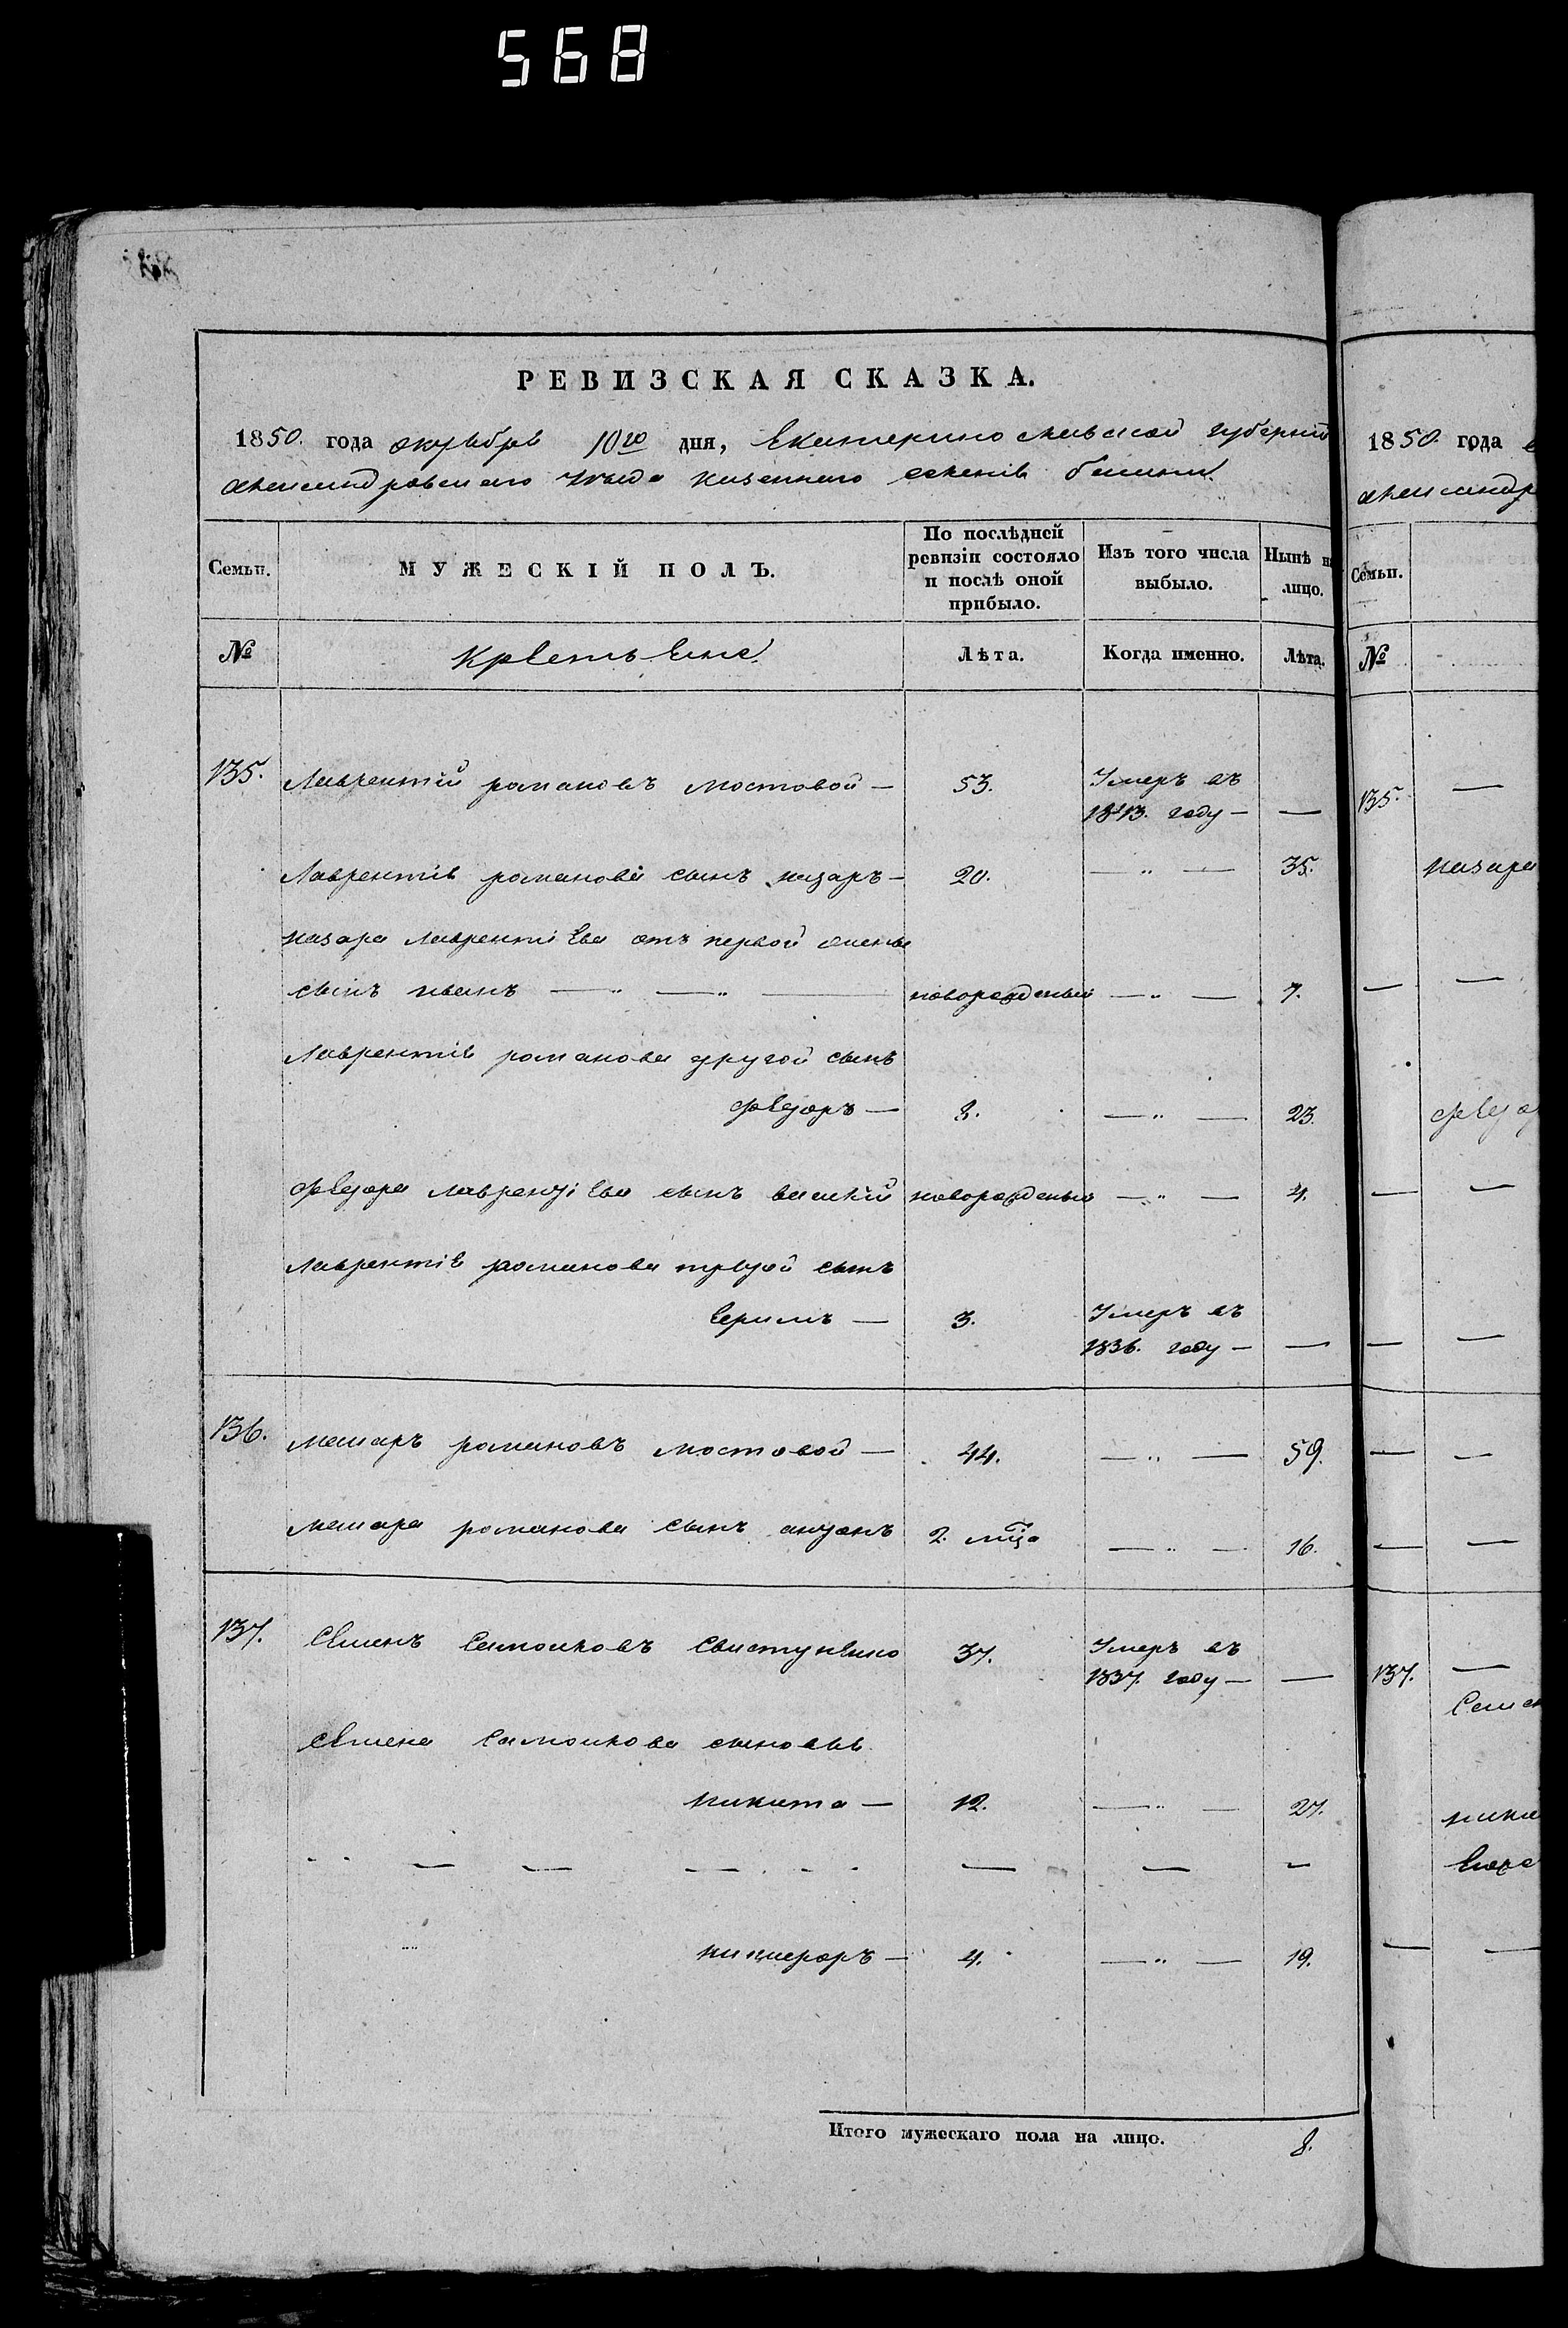 568
РЕВИЗСКАЯ СКАЗКА.
1850. года октября 10го дня, Екатеринославской губерніи
александровскаго уѣзда казеннаго селенія
Семьи. МУЖЕСКІЙ ПОЛЪ. По послѣдней ревизіи состояло и послѣ оной прибыло. Изъ того числа выбыло. Нынѣ на лицо.
№ Крестьяне Лѣта. Когда именно. Лѣта.
135. Лаврентій романовъ мостовой — 53. Умеръ въ
1843. году — —
Лаврентія романова сынъ назаръ — 20. — „ — 35.
назара лаврентіева отъ первой жены
сынъ иванъ — „ — „ — новорожденый — „ — 7.
Лаврентія романова другой сынъ
федоръ — 8. — „ — 23.
федора лаврентіева сынъ василій новорожденый — „ — 4.
лаврентія романова третій сынъ
3. Умеръ въ
1836. году — —
136. макаръ романовъ мостовой — 44. — „ — 59.
макара романова сынъ антонъ 2. мца — „ — 16.
137. Семенъ Самойловъ Свистунено 37. Умеръ въ
1837. году — —
семена Самойлова сыновья
никита — 12. — „ — 27.
никифоръ — 4. — „ — 19.
Итого мужескаго пола на лицо. 8.
1850 года
Семьи.
№
135. —
назара
137. —